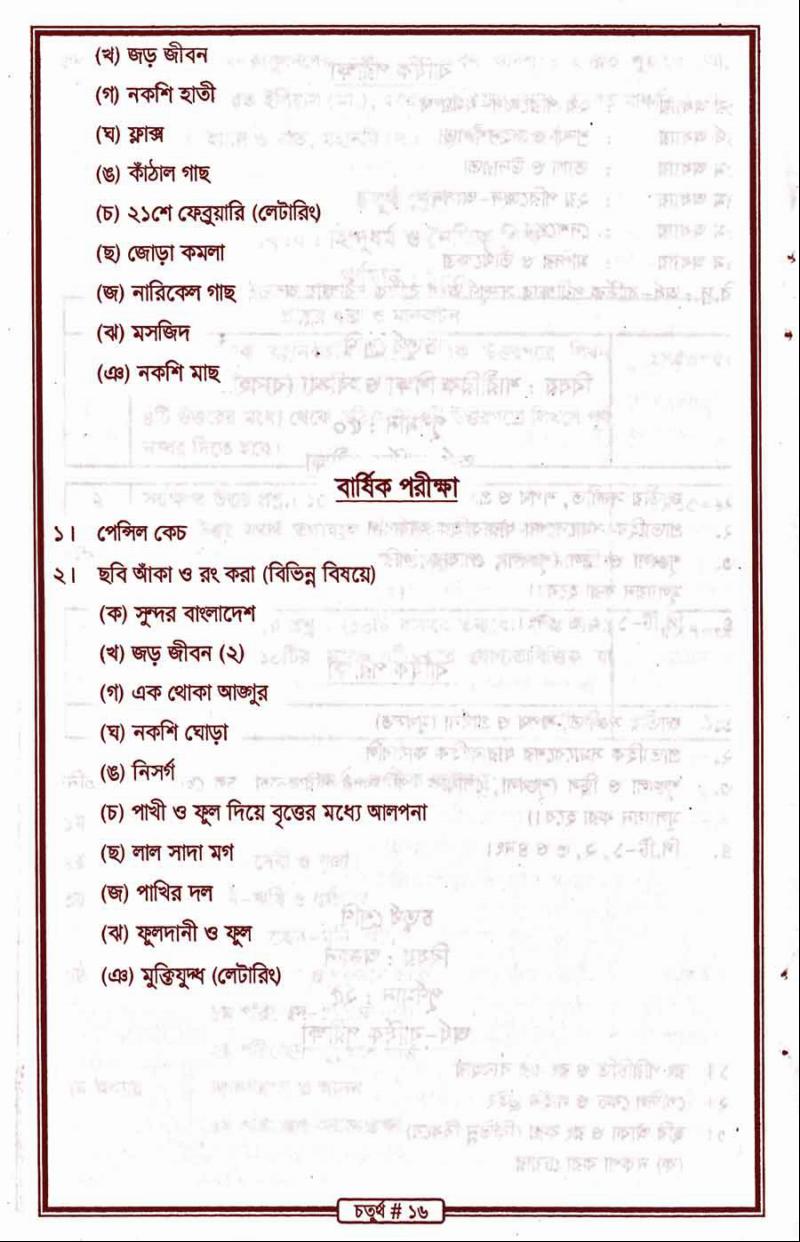 (খ) জড় জীবন
(গ) নকশি হাতী
(ঘ) ফ্লাক্স
(ঙ) কাঁঠাল গাছ
(চ) ২১শে ফেব্রুয়ারি (লেটারিং)
(ছ) জোড়া কমলা
(জ) নারিকেল গাছ
(ঝ) মসজিদ
(ঞ) নকশি মাছ
বার্ষিক পরীক্ষা
১। পেন্সিল কেচ
২। ছবি আঁকা ও রং করা (বিভিন্ন বিষয়ে)
(ক) সুন্দর বাংলাদেশ
(খ) জড় জীবন (২)
(গ) এক থোকা আঙ্গুর
(ঘ) নকশি ঘোড়া
(ঙ) নিসর্গ
(চ) পাখী ও ফুল দিয়ে বৃত্তের মধ্যে আলপনা
(ছ) লাল সাদা মগ
(জ) পাখির দল
(ঝ) ফুলদানী ও ফুল
(ঞ) মুক্তিযুদ্ধ (লেটারিং)
চতুর্থ # ১৬